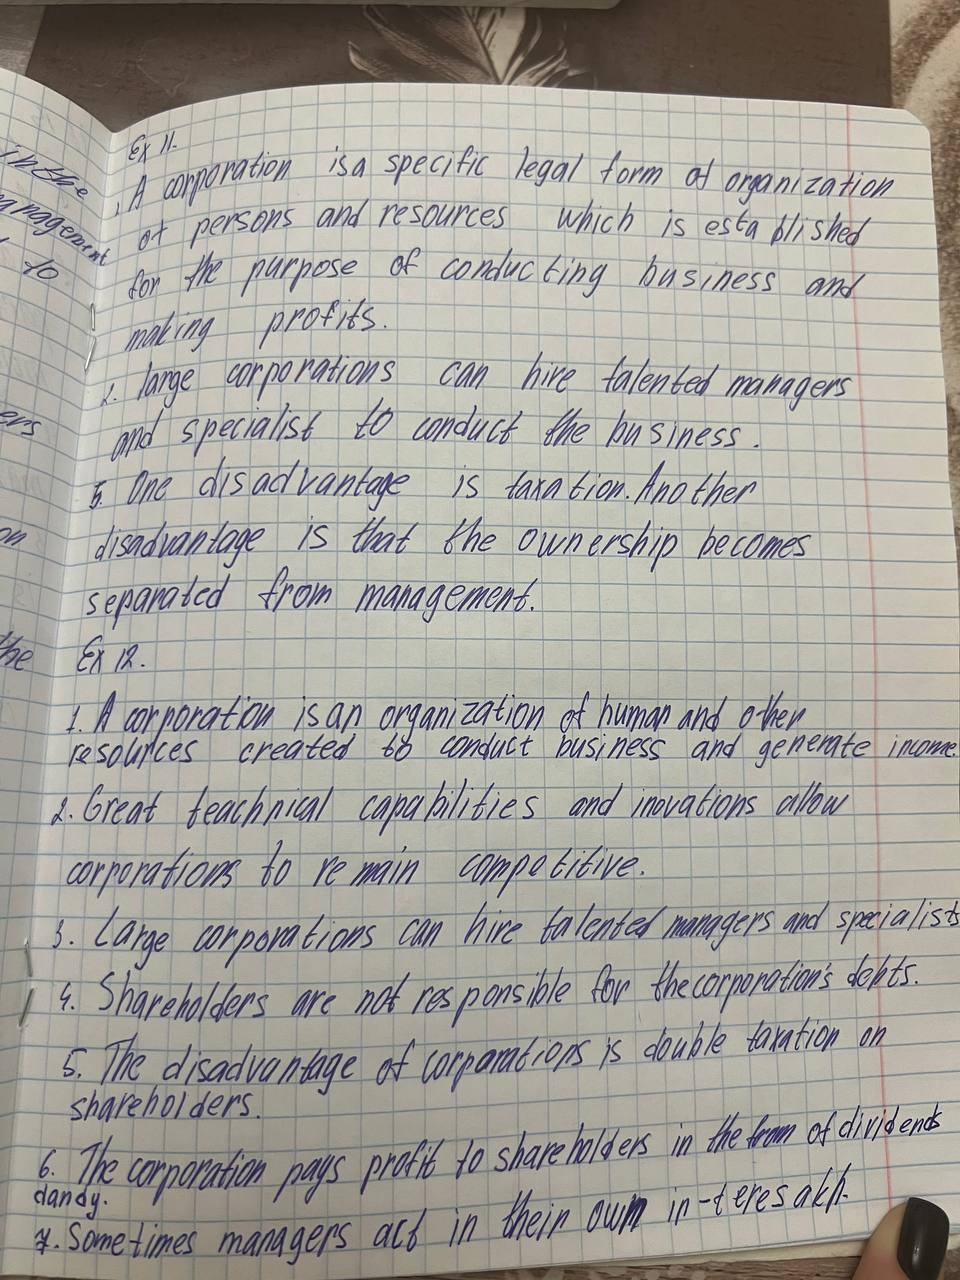 in the
management
to
ers
on
the
Ex 11.
1. A corporation is a specific legal form of organization
of persons and resources which is established
for the purpose of conducting business and
making profits.
2. large corporations can hire talented managers
and specialist to conduct the business.
5. One disadvantage is taxation. Another
disadvantage is that the ownership becomes
separated from management.
Ex 12.
1. A corporation is an organization of human and other
resources created to conduct business and generate income.
2. Great teachnical capabilities and inovations allow
corporations to remain competitive.
3. Large corporations can hire talented managers and specialists
4. Shareholders are not responsible for the corporation's debts.
5. The disadvantage of corporations is double taxation on
shareholders.
6. The corporation pays profit to shareholders in the from of dividends
dandy.
7. Sometimes managers act in their own in-teres akh.